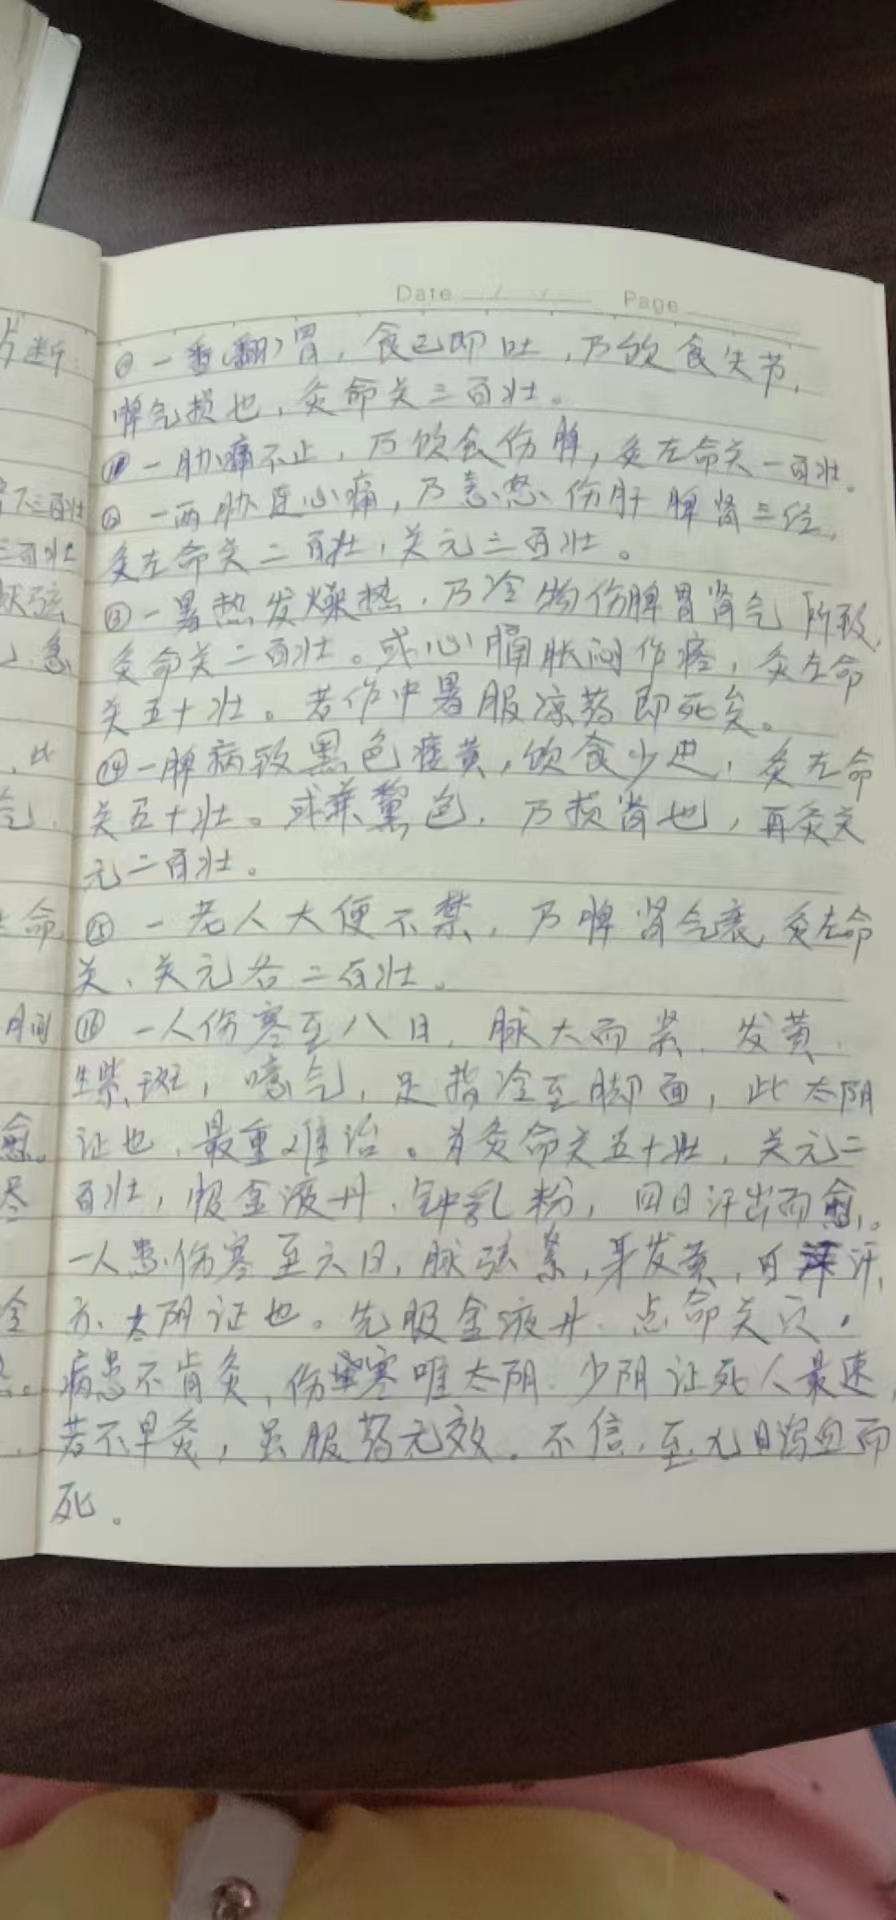 Date / / Page
⑩一番(翻)胃，食已即吐，乃饮食失节，
脾气损也，灸命关三百壮。
⑪一胁痛不止，乃饮食伤脾，灸左命关一百壮。
⑫一两胁连心痛，乃恚怒伤肝脾肾三经，
灸左命关二百壮，关元三百壮。
⑬一暑热发燥热，乃冷物伤脾胃肾气所致，
灸命关二百壮。或心膈胀闷作疼，灸左命
关五十壮。若作中暑服凉药即死矣。
⑭一脾病致黑色痿黄，饮食少进，灸左命
关五十壮。或兼黧色，乃损肾也，再灸关
元二百壮。
⑮一老人大便不禁，乃脾肾气衰，灸左命
关、关元各二百壮。
⑯一人伤寒至八日，脉大而紧，发黄，
生紫斑，噫气，足指冷至脚面，此太阴
证也，最重难治。为灸命关五十壮，关元二
百壮，服金液丹、钟乳粉，四日汗出而愈。
一人患伤寒至六日，脉弦紧，身发黄，自汗，
亦太阴证也。先服金液丹，点命关穴。
病患不肯灸，伤寒唯太阴、少阴证死人最速，
若不早灸，虽服药无效。不信，至九日泻血而
死。